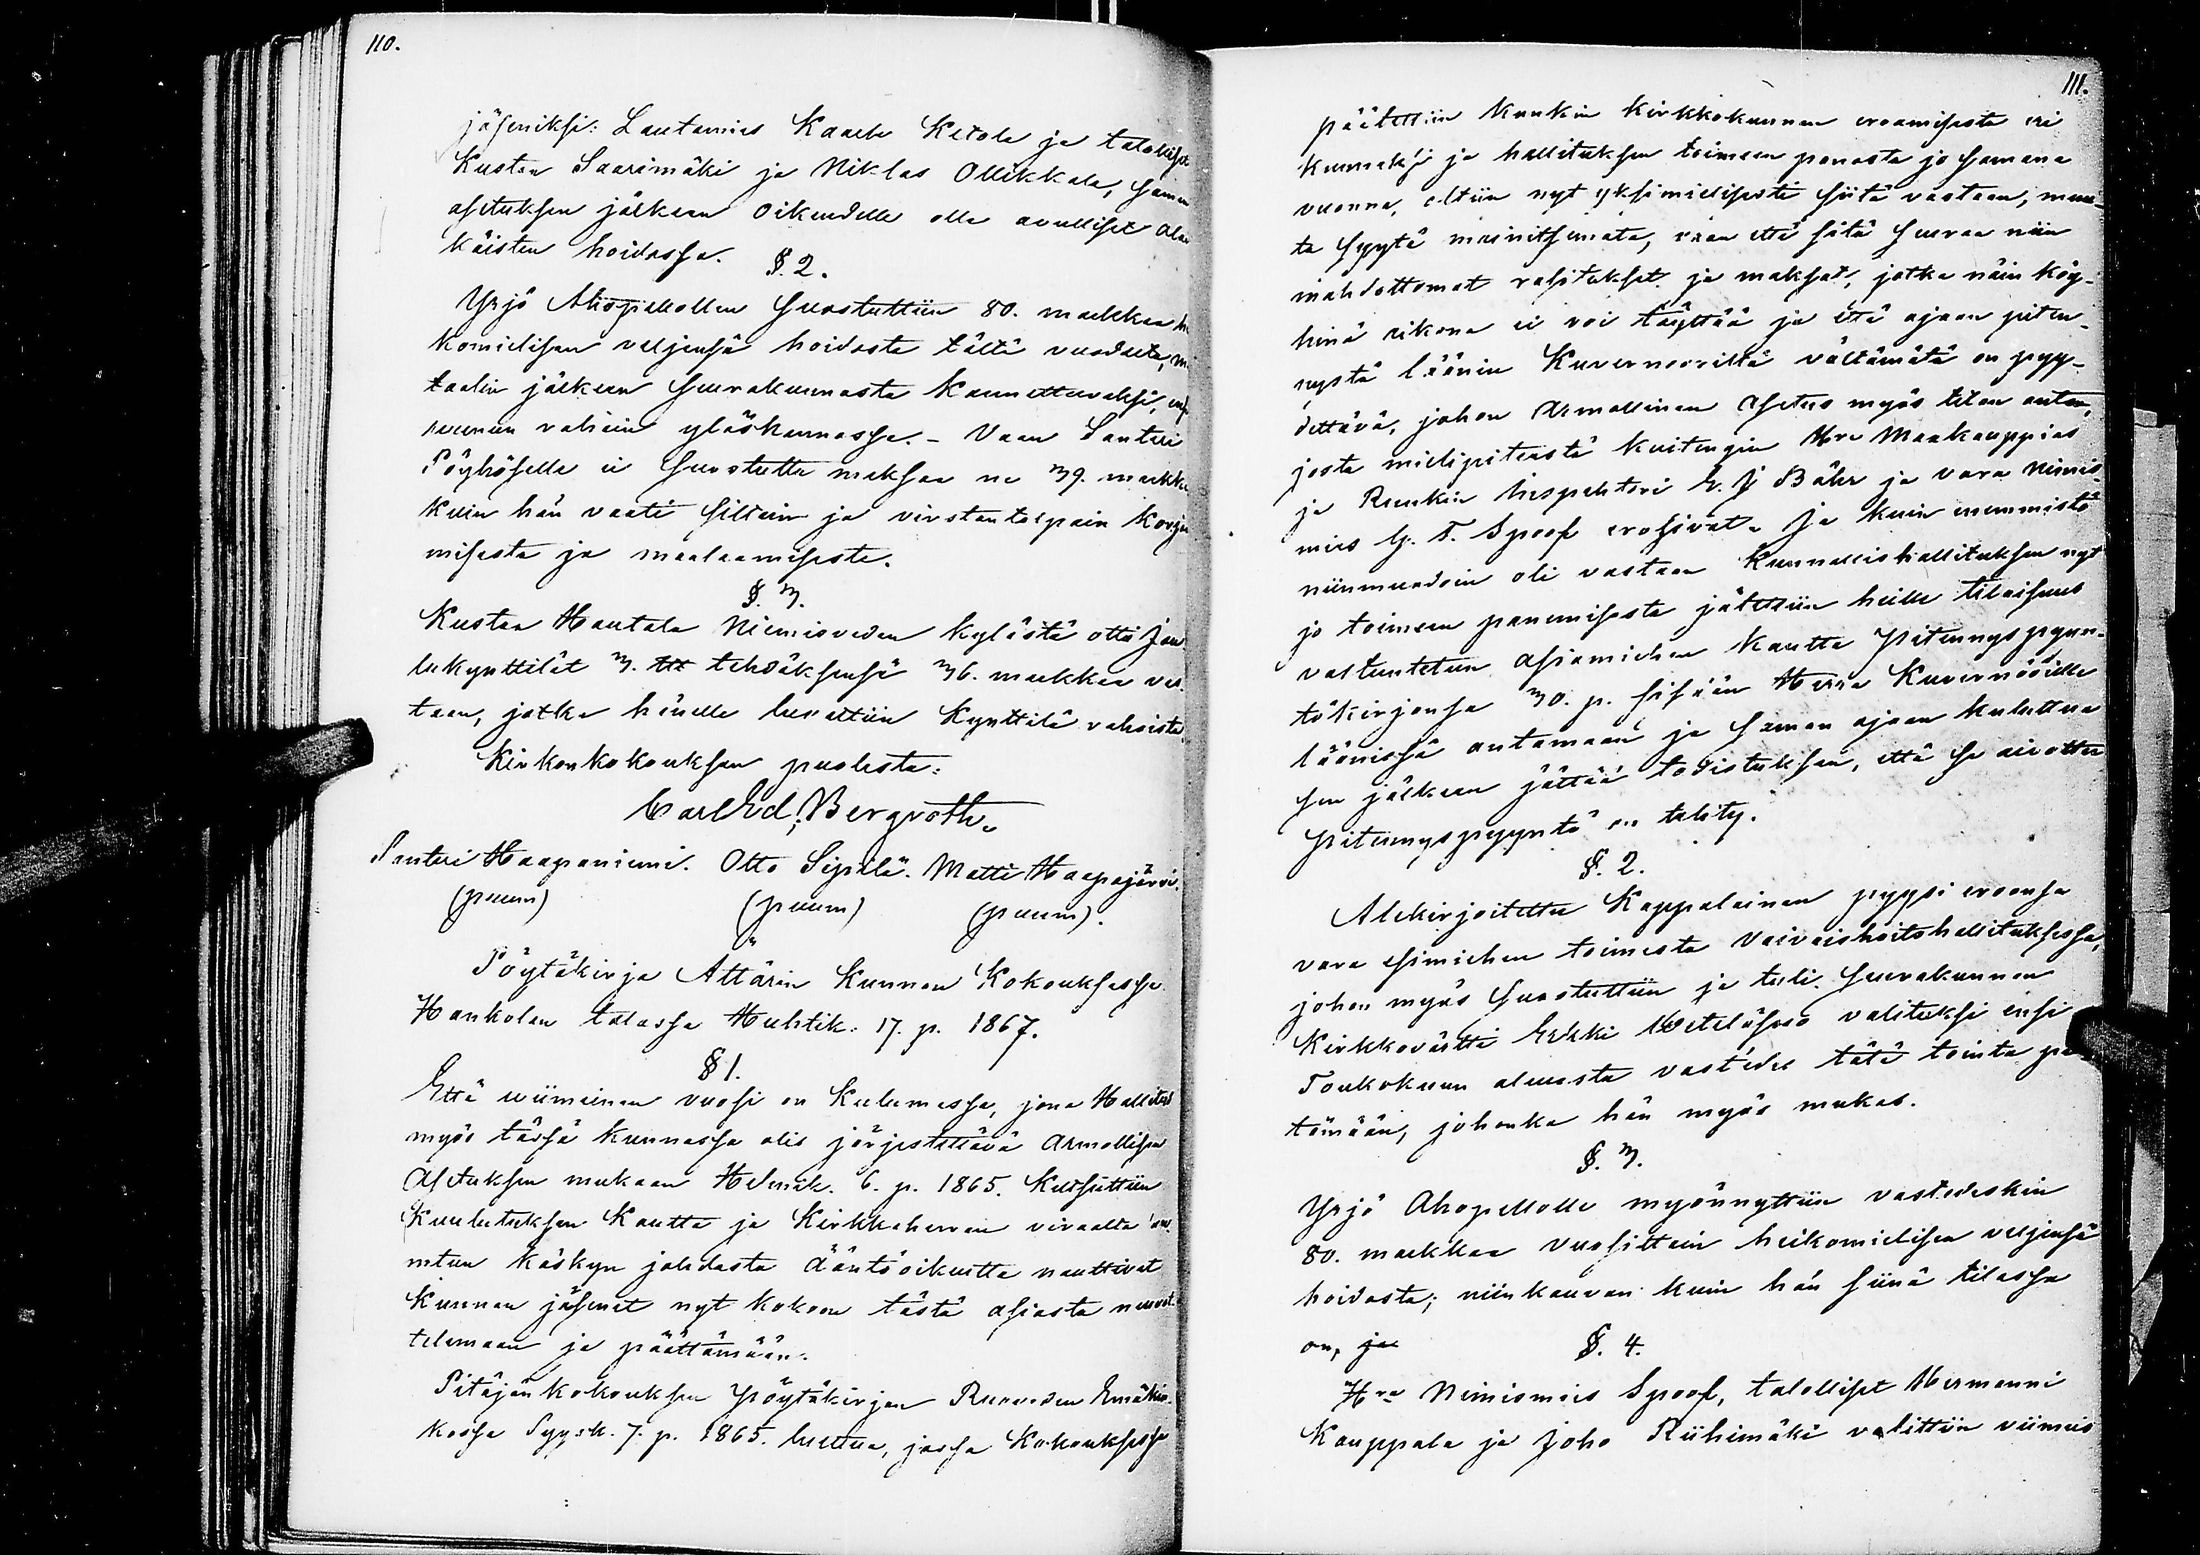 110.
jäseniksi: Lautamies Kaarle Ketola ja talolliset
Kustaa Saarimäki ja Niklas Ollikkala, saman
asetuksen jälkeen oikeudelle olla avulliset ala-
käisten hoidossa.
§. 2.
Yrjö Ahopellollen suostuttiin 80. markkaa
komielisen veljensä hoidosta tältä vuodelta,
taalin jälkeen seurakunnasta kannettavaksi,
ruunun rahain yläskannossa. - Vaan Santeri
Pöyhöselle ei suostuttu maksaa ne 39. markkaa
kuin hän vaati siltain ja virstantolpain korja-
misesta ja maalaamisesta.
§. 3.
Kustaa Hautala Niemisveden kylästä otti jou-
lukynttilät 3. tehdäksensä 36. markkaa vas-
taan, jotka hänelle luvattiin kynttilä rahoista.
Kirkonkokouksen puolesta:
Carl Ed; Bergroth.
Santeri Haapaniemi. Otto Sipilä. Matti Haapajärvi.
(puum) (puum) (puum).
Pöytäkirja Ätärin Kunnan Kokouksessa
Hankolan talossa Huhtik: 17. p. 1867.
§ 1.
Että wiimeinen vuosi on kulumassa, jona Hallitus
myös tässä kunnassa olis järjestettävä Armollisen
Asetuksen mukaan Helmik. 6. p. 1865. kutsuttiin
Kuulutuksen kautta ja Kirkkoherran viraalta an-
netun käskyn johdosta ääntöoikeutta nauttivat
Kunnan jäsenet nyt kokoon tästä asiasta neuvot-
telemaan ja päättämään.
Pitäjän kokouksen pöytäkirjan Ruoveden Emäkir-
kossa Syysk. 7. p. 1865. luettua, jossa Kokouksessa
111.
päätettiin kunkin kirkkokunnan eroamisesta eri
kunnaksi ja hallituksen toimeen panosta jo samana
vuonna, oltiin nyt yksimielisesti siitä vastaan, muu-
ta syytä mainitsemata, vaan että sitä seuraa niin
mahdottomat rasitukset ja maksot, jotka näin köy-
hinä aikona ei voi täyttää ja että ajaan piten-
nystä läänin Kuvernööriltä vältämätä on pyy-
dettävä, johon Armollinen Asetus myös tilan antaa,
josta mielipiteestä kuitengin Hra Maakauppias
ja Ruukin Inspehtori E. J Bähr ja vara Nimis-
mies G. F. Spoof erosivat. Ja kuin enemmistö
niinmuodoin oli vastaan Kunnallishallituksen nyt
jo toimeen panemisesta jätettiin heille tilaisuus
valtuutetun asiamiehen kautta Pitennyspyyn-
tökirjansa 30. p. sisään Herra Kuvernöörille
läänissä antamaan ja saman ajaan kuluttua
sen jälkeen jättää todistuksen, että se aivottu
Pitennyspyyntö on tehty.
§. 2.
Alekirjoitettu Kappalainen pyysi eroansa
vara esimiehen toimesta Vaivaishoitohallituksessa,
johon myös suostuttiin ja tuli seurakunnan
Kirkkoväärtti Erkki Wetelässo valituksi ensi
Toukokuun alusta vast'edes tätä tointa pi-
tämään, johonka hän myös mukas.
§. 3.
Yrjö Ahopellolle myönnyttiin vastedeskin
80. markkaa vuosittain heikomielisen veljensä
hoidosta; niinkauvan kuin hän siinä tilassa
on, ja
§. 4.
Hra Nimismies Spoof, talolliset Hermanni
Kauppala ja Joho Riihimäki valittiin viimeis